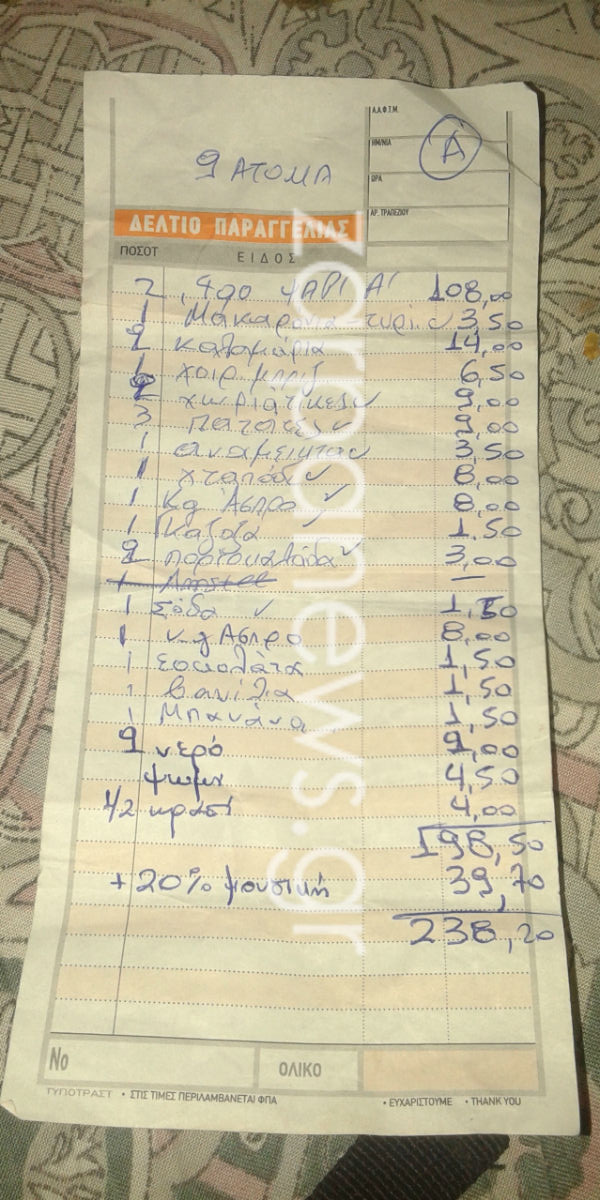 Α.Α.Φ.Τ.Μ.
ΗΜ/ΝΙΑ
Α
ΩΡΑ
ΑΡ. ΤΡΑΠΕΖΙΟΥ
9 ΑΤΟΜΑ
ΔΕΛΤΙΟ ΠΑΡΑΓΓΕΛΙΑΣ
ΠΟΣΟΤ ΕΙΔΟΣ
2, 400 ΨΑΡΙ Α' 108,00
1 Μακαρόνια τυρί 3,50
2 καλαμάρια 14,00
1 χοιρ. μπριζ 6,50
2 χωριάτικες 9,00
3 Πατάτες 9,00
1 αναμεικτα 3,50
1 χταπόδι 8,00
1 Kg Άσπρο 8,00
1 Γκαζόζα 1.50
2 πορτοκαλάδα 3,00
1 Amstel —
1 Σόδα 1,50
1 κ.g Ασπρο 8,00
1 σοκολάτα 1,50
1 βανίλια 1,50
1 Μπανάνα 1,50
9 νερό 9,00
ψωμι 4,50
1/2 κρασί 4,00
198,50
+ 20% μουσική 39,70
238,20
Νο ΟΛΙΚΟ
ΤΥΠΟΤΡΑΣΤ • ΣΤΙΣ ΤΙΜΕΣ ΠΕΡΙΛΑΜΒΑΝΕΤΑΙ ΦΠΑ • ΕΥΧΑΡΙΣΤΟΥΜΕ • THANK YOU
zarpanews.gr